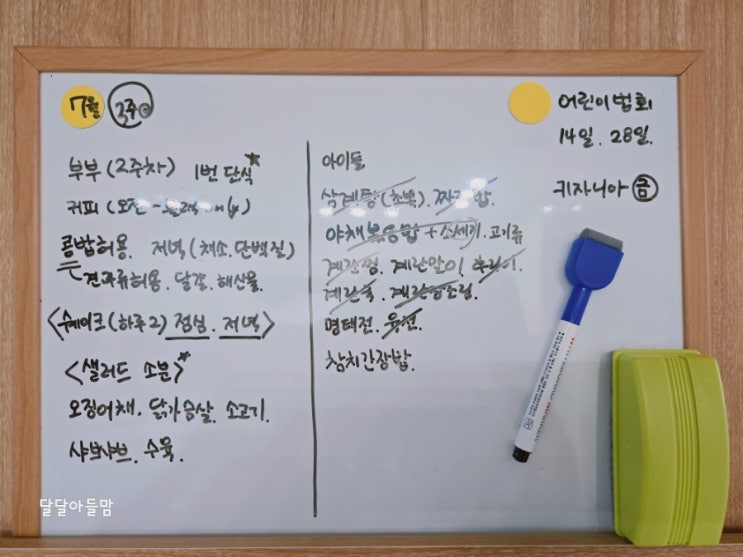 7월 2주
부부 (2주차) 1번 단식*
커피 (오전-블랙 only)
콩밥허용. 저녁 (채소.단백질)
견과류허용. 달걀. 해산물.
<쉐이크 (하루2) 점심. 저녁>
<샐러드 소분>*
오징어채. 닭가슴살. 소고기.
샤브샤브. 수육.
아이들
삼계탕 (초복). 짜장밥.
야채볶음밥 + 소세지. 고기류
계란찜. 계란말이.
계란국.
명태전.
참치간장밥.
어린이법회
14일. 28일.
키자니아 금
달달아들맘